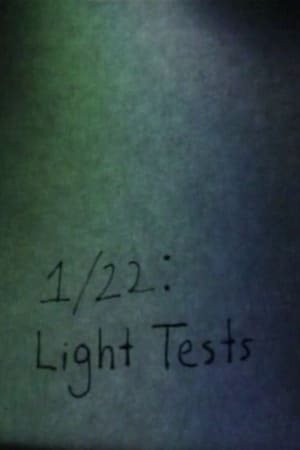 1/22:
Light Tests